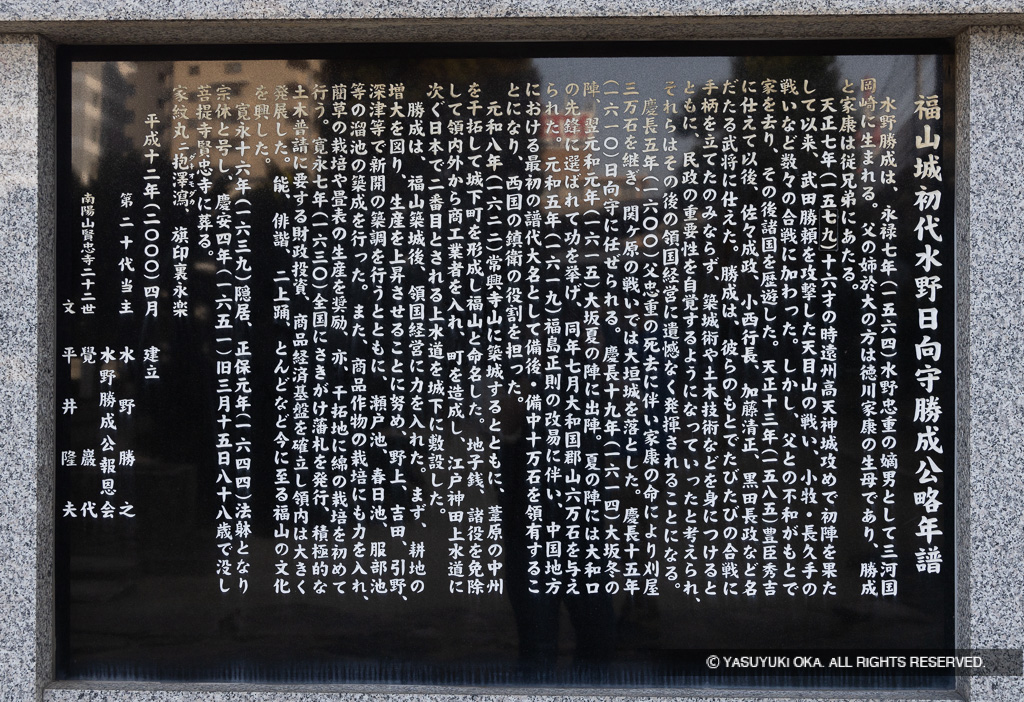 福山城初代水野日向守勝成公略年譜
水野勝成は、永禄七年(一五六四)水野忠重の嫡男として三河国
岡崎に生まれる。父の姉於大の方は徳川家康の生母であり、勝成
と家康は従兄弟にあたる。
天正七年(一五七九)十六才の時遠州高天神城攻めで初陣を果た
して以来、武田勝頼を攻撃した天目山の戦い、小牧・長久手の
戦いなど数々の合戦に加わった。しかし、父との不和がもとで
家を去り、その後諸国を歴遊した。天正十三年(一五八五)豊臣秀吉
に仕えて以後、佐々成政、小西行長、加藤清正、黒田長政など名
だたる武将に仕えた。勝成は、彼らのもとでたびたびの合戦に
手柄を立てたのみならず、築城術や土木技術などを身につけると
ともに、民政の重要性を自覚するようになっていったと考えられ、
それらはその後の領国経営に遺憾なく発揮されることになる。
慶長五年(一六〇〇)父忠重の死去に伴い家康の命により刈屋
三万石を継ぎ、関ヶ原の戦いでは大垣城を落とした。慶長十五年
(一六一〇)日向守に任ぜられる。慶長十九年(一六一四)大坂冬の
陣、翌元和元年(一六一五)大坂夏の陣に出陣。夏の陣には大和口
の先鋒に選ばれて功を挙げ、同年七月大和国郡山六万石を与え
られた。元和五年(一六一九)福島正則の改易に伴い、中国地方
における最初の譜代大名として備後・備中十万石を領有するこ
とになり、西国の鎮衛の役割を担った。
元和八年(一六二二)常興寺山に築城するとともに、葦原の中州
を干拓して城下町を形成し福山と命名した。地子銭、諸役を免除
して領内外から商工業者を入れ、町を造成し、江戸神田上水道に
次ぐ日本で二番目とされる上水道を城下に敷設した。
勝成は、福山築城後、領国経営に力を入れた。まず、耕地の
増大を図り、生産を上昇させることに努め、野上、吉田、引野、
深津等で新開の築調を行うとともに、瀬戸池、春日池、服部池
等の溜池の築成を行った。また、商品作物の栽培にも力を入れ、
藺草の栽培や畳表の生産を奨励、亦、干拓地に綿の栽培を初めて
行う。寛永七年(一六三〇)全国にさきがけ藩札を発行、積極的な
土木普請に要する財政投資、商品経済基盤を確立し領内は大きく
発展した。能、俳諧、二上踊、とんどなど今に至る福山の文化
を興した。
寛永十六年(一六三九)隠居、正保元年(一六四四)法躰となり
宗休と号し、慶安四年(一六五一)旧三月十五日八十八歳で没し
菩提寺賢忠寺に葬る。
家紋丸二抱澤瀉、旗印裏永楽
ダキオモダカ
平成十二年(二〇〇〇)四月 建立
第二十代当主 水野勝之
水野勝成公報恩会
南陽山賢忠寺二十二世 覺巖代
文 平井隆夫
© YASUYUKI OKA. ALL RIGHTS RESERVED.